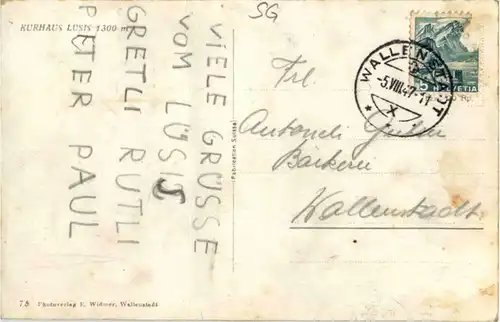 SG
KURHAUS LÜSIS 1300 m
VIELE GRÜSSE
VOM LÜSIS
GRETLI RUTLI
PETER PAUL
Fabrication Suisse
WALLENSTADT
-5.VIII.47-11
X
5 HELVETIA
Frl
Bäckerei
Wallenstadt
78 Photoverlag E. Widmer, Wallenstadt